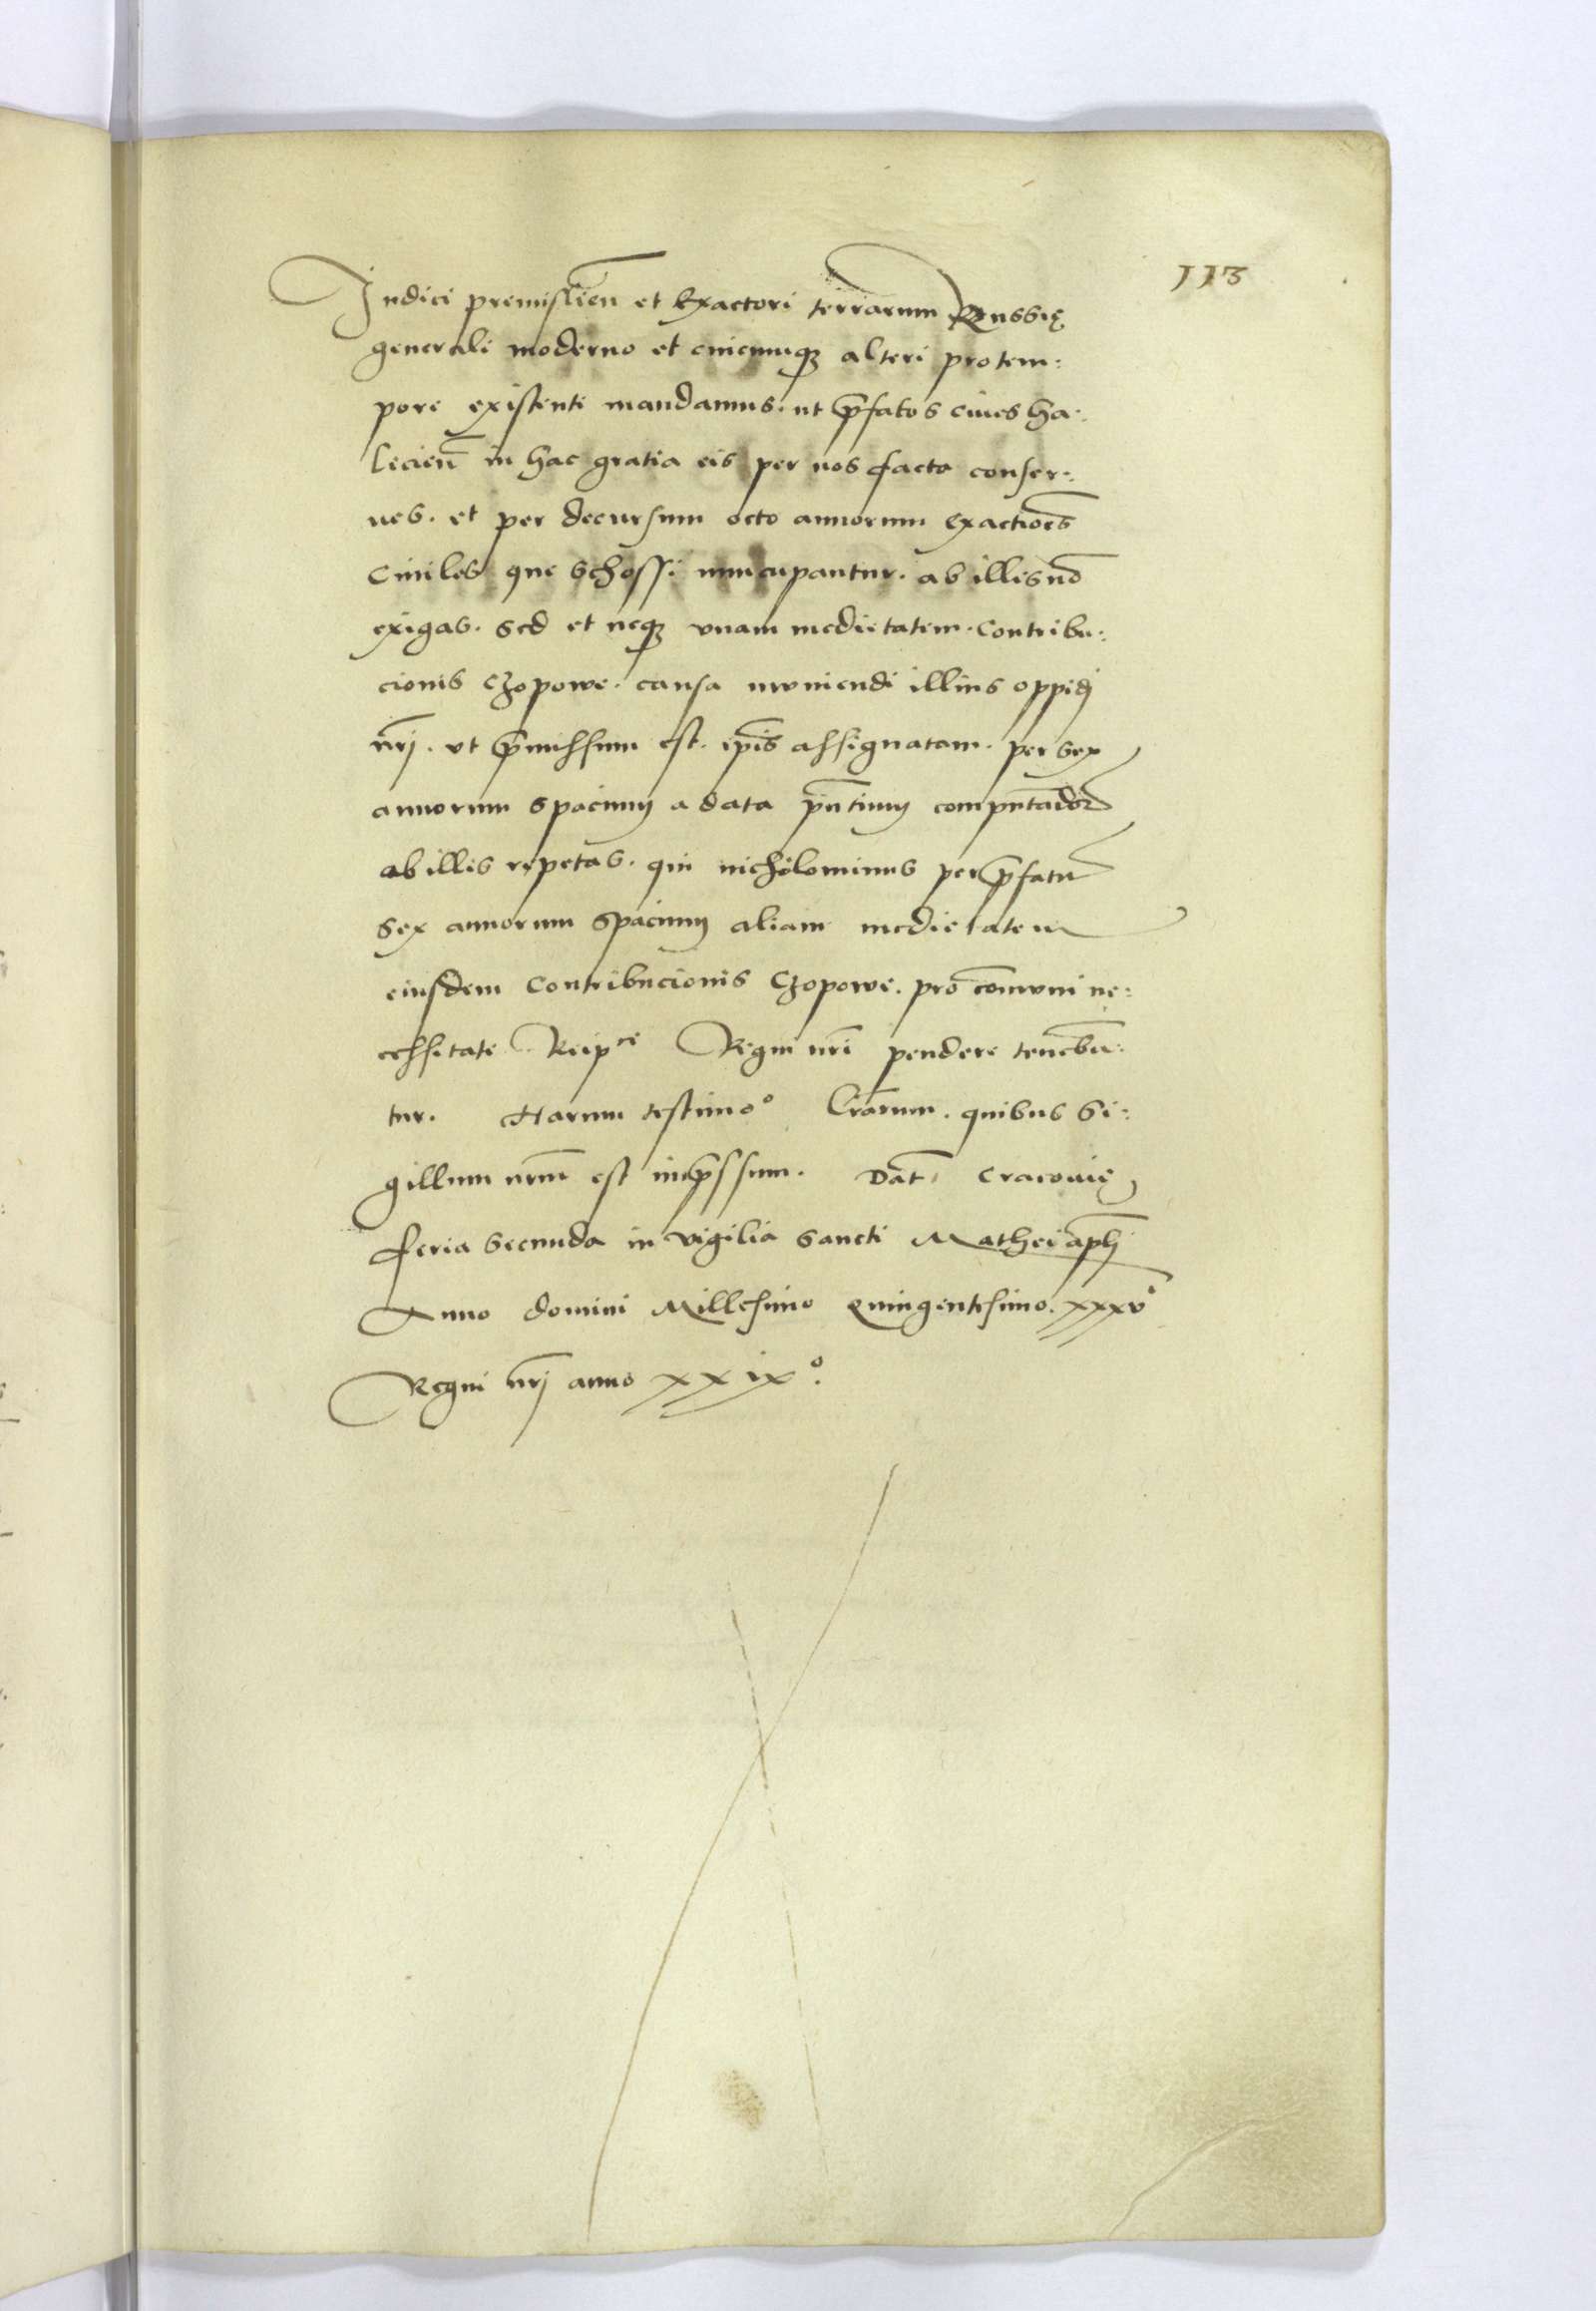 113
Iudici premislień et Exactori terrarum Russię
generali moderno et cuicumqȝ alteri protem:
pore existenti mandamus. ut p̄fatos ciues ha:
licień in hac gratia eis per nos facta conser:
ues. et per decursum octo annorum exactiōes
Ciuiles que schossi nuncupantur. ab illis nō
exigas. sed et neqȝ vnam medietatem. Contribu:
cionis Czopowe. causa muniendi illius oppidj
nr̄j. vt p̄missum est. ip̄is assignatam. per sex
annorum spacium a data p̄ntium computādoꝝ
ab illis repetas. qui nichilominus per p̄fatū
sex annorum spacium aliam medietatem
eiusdem Contribucionis Czopowe. pro cōmuni ne:
cessitate Reipce Regni nr̄i pendere tenebū:
tur. Harum testimo° lr̄arum. quibus Si:
gillum nr̄um est imp̄ssum. Dat̄ Cracouię
feria secunda in vigilia sancti Mathei apl̄i
Anno domini Millesimo Quingentesimo. xxxv°
Regni nr̄j anno xxix°.